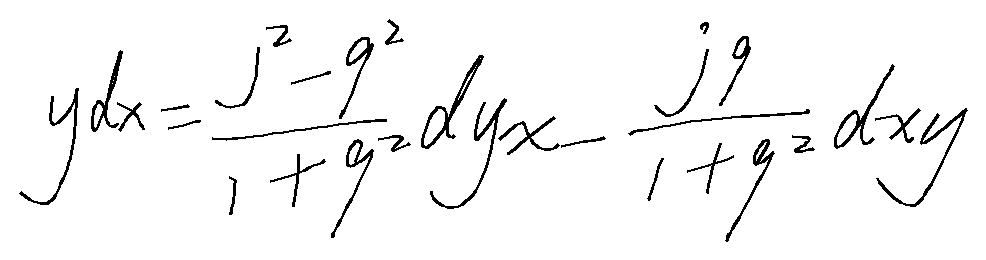 ydx = \frac{j^2 - q^2}{1 + q^2} dyx - \frac{jq}{1 + q^2} dxy